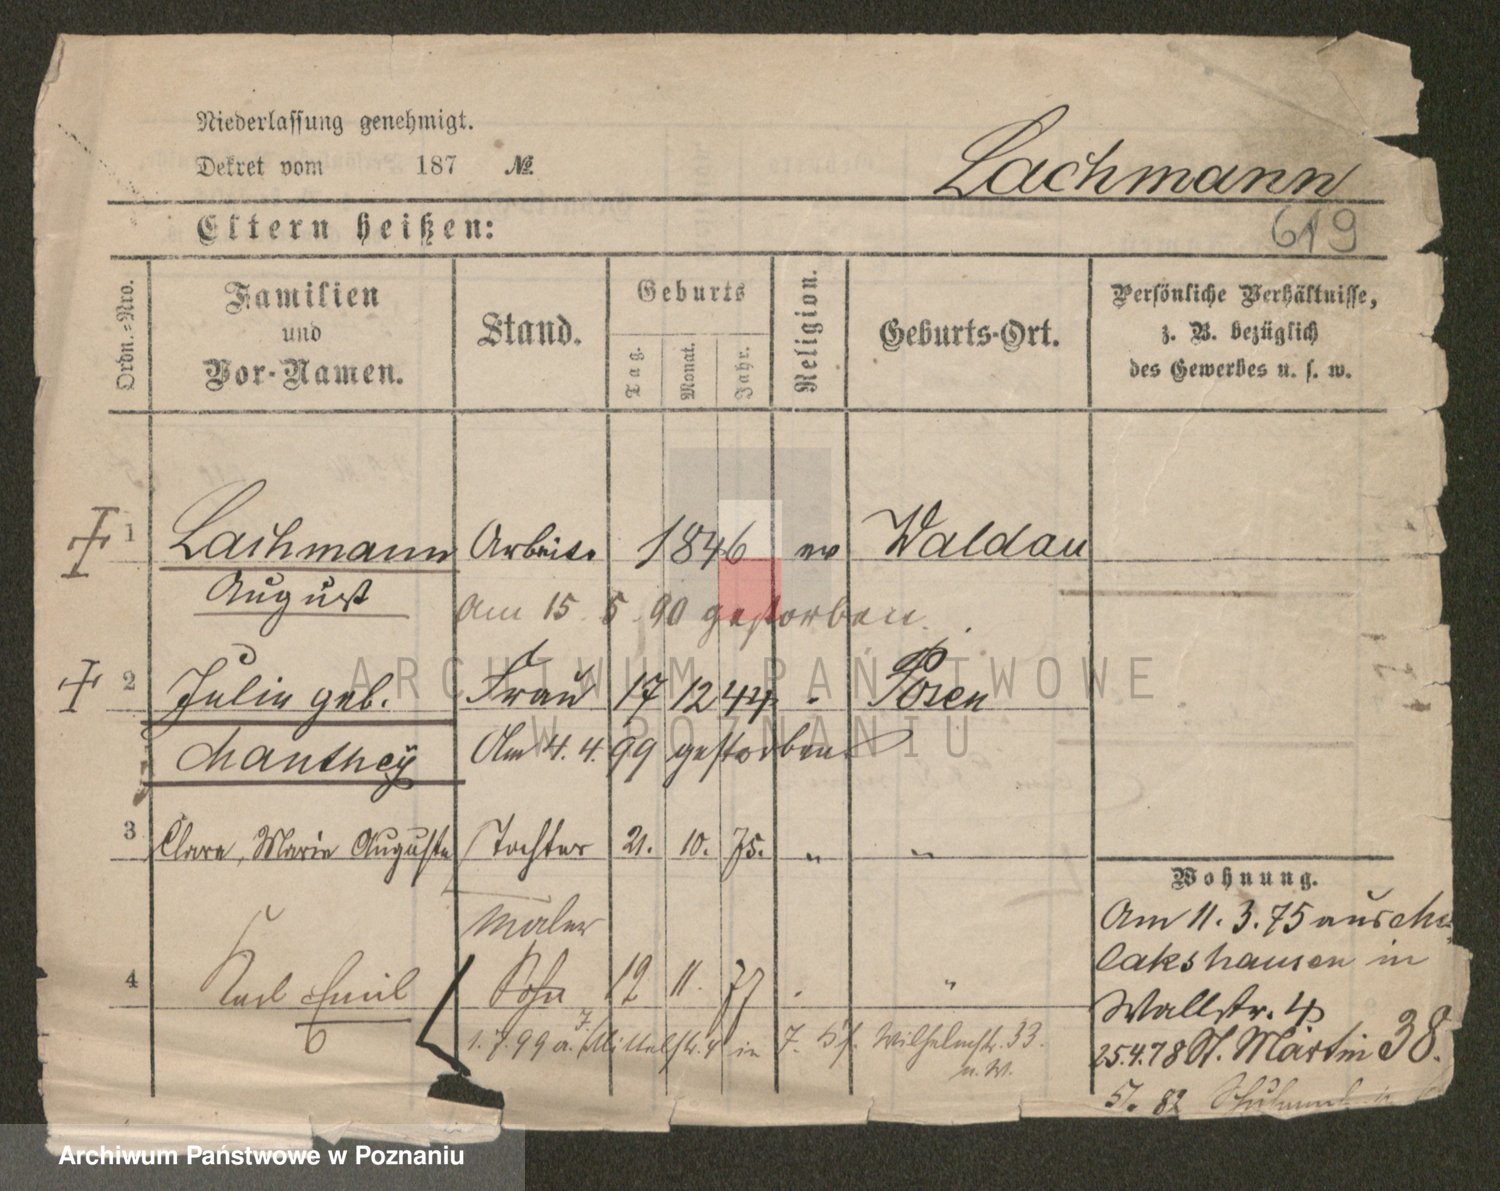 Niederlassung genehmigt.
Dekret vom 187 №
Lachmann
619
Eltern heißen:
Ordn.-Nro.
Familien und Vor-Namen.
Stand.
Geburts
Tag. Monat. Jahr.
Religion.
Geburts-Ort.
Persönliche Verhältnisse,
z. B. bezüglich
des Gewerbes u. s. w.
1 Lachmann Arbeit. 1846 ev Waldau
August am 15. 5. 90 gestorben.
2 Julie geb. Frau 17 12 44 " Posen
Manthey Am 4. 4. 99 gestorben
3 Clara, Marie Auguste Tochter 21. 10. 75. " "
Maler
4 Karl Emil Sohn 12 11. 77 " "
6
1. 7. 99 a. Mittelstr. 4 in 7. Wilhelmstr. 33.
n. W.
Wohnung.
Am 11. 3. 75 aus
lakshausen in
Wallstr. 4
25.4.78 St. Martin 38.
82
ARCHIWUM PAŃSTWOWE
W POZNANIU
Archiwum Państwowe w Poznaniu